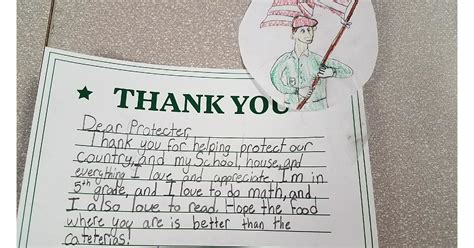 THANK YOU
Dear Protecter
Thank you for helping protect our
country, and my School, house, and
everything I love and appreciate. I'm in
5th grade, and I love to do math, and
I also love to read. Hope the food
where you are is better than the
cafeterias!